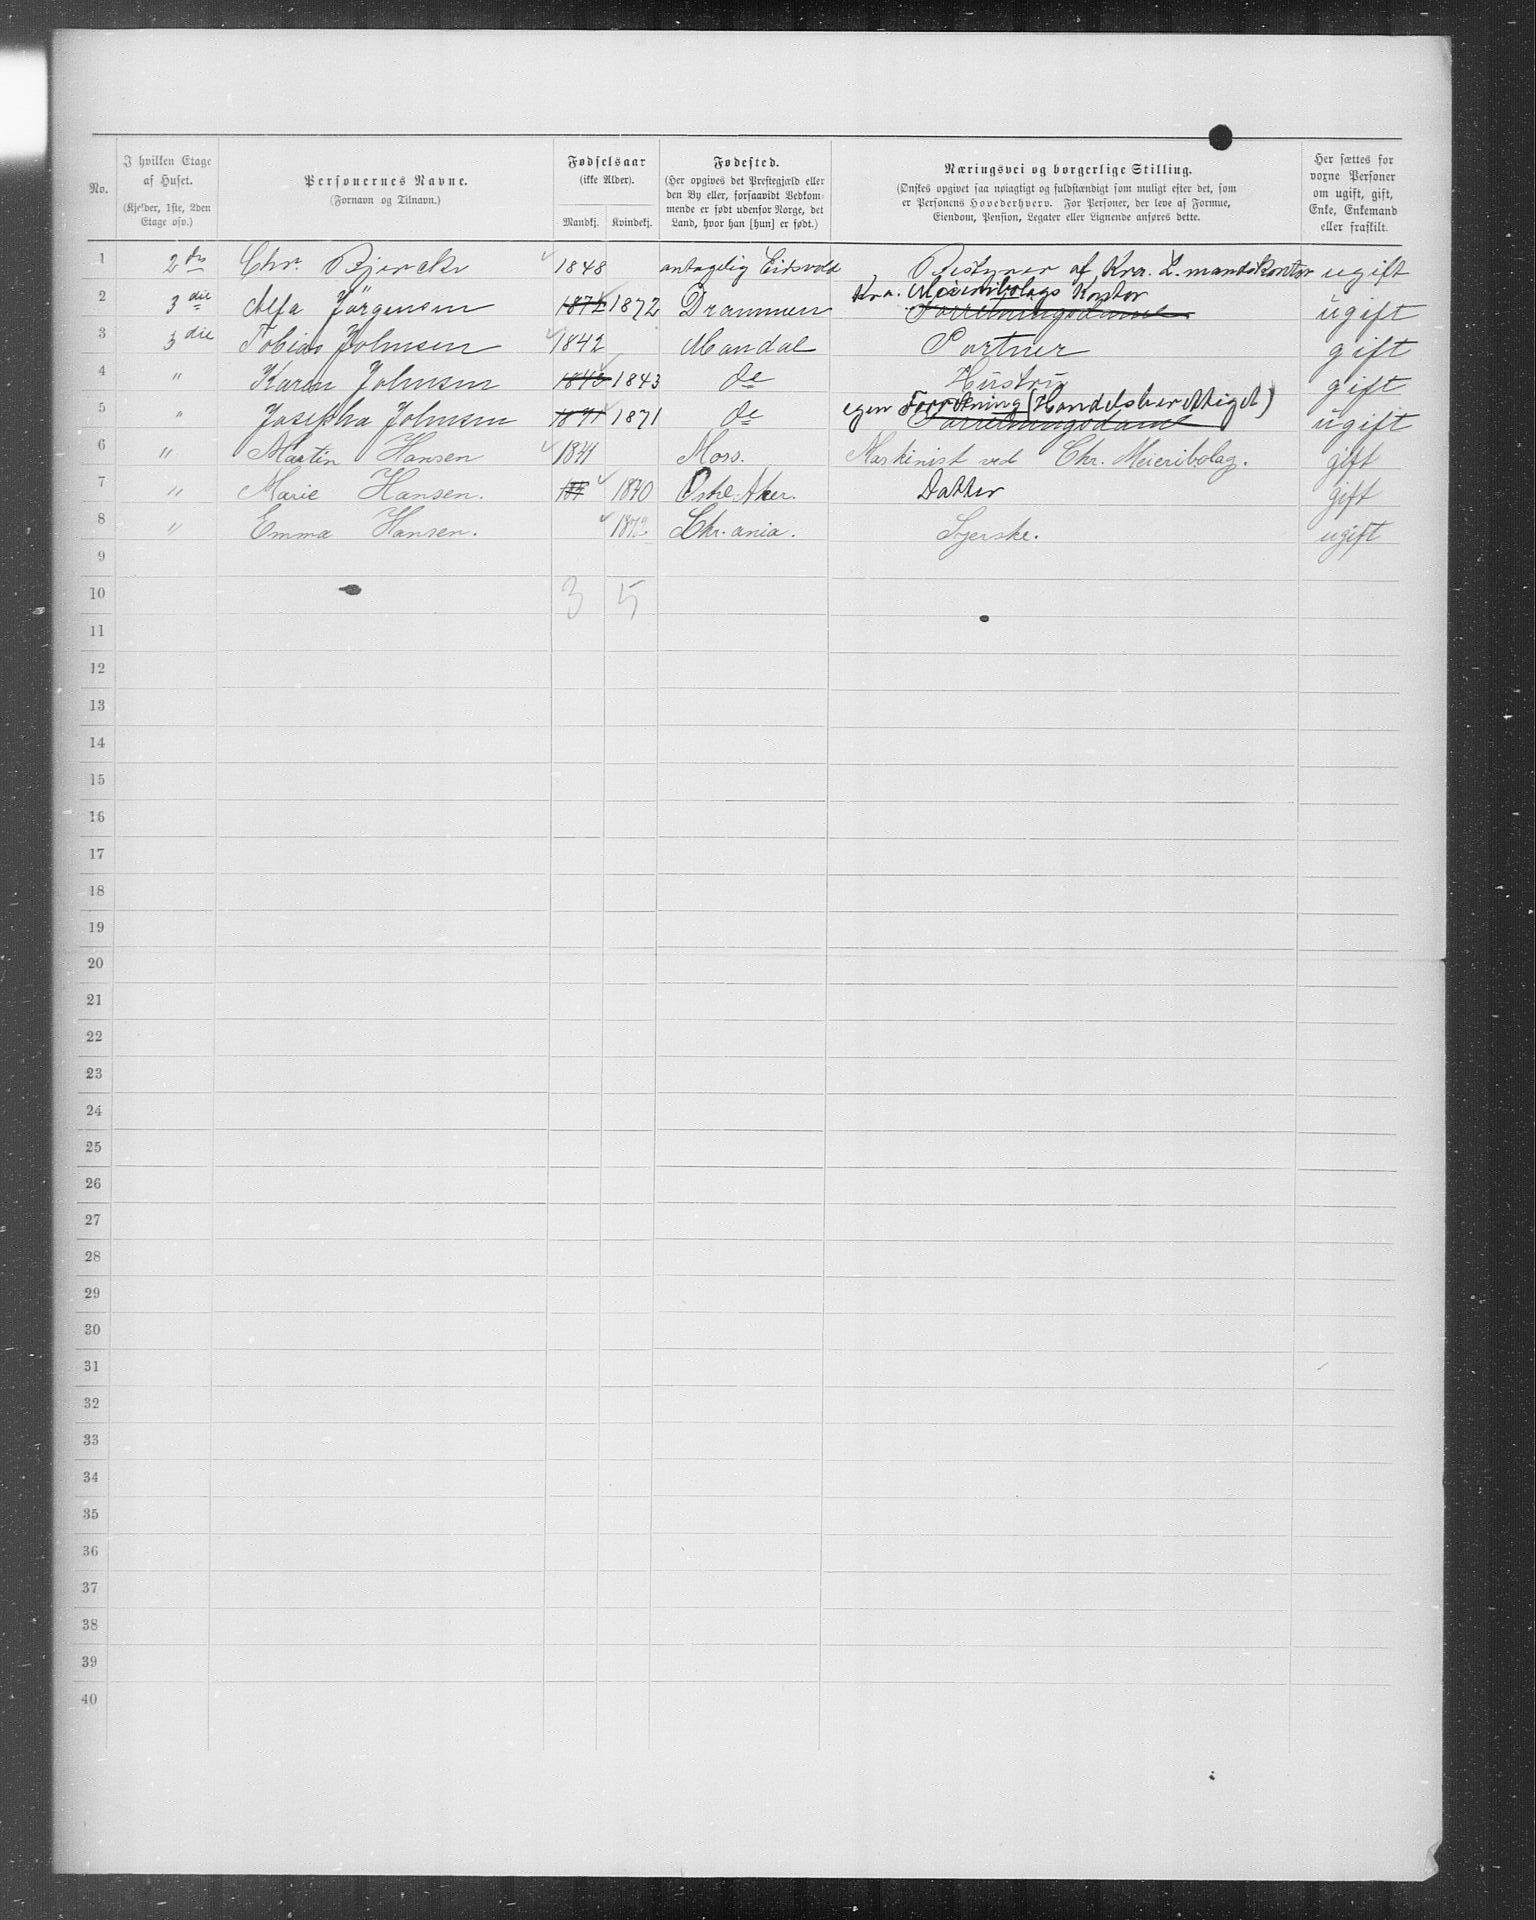 No.
I hvilken Etage af Huset.
(Kjelder, 1ste, 2den Etage osv.)
Personernes Navne.
(Fornavn og Tilnavn.)
Fødselsaar
(ikke Alder).
Mandkj. Kvindekj.
Fødested.
(Her opgives det Prestegjæld eller
den By eller, forsaavidt Vedkom-
mende er født udenfor Norge, det
Land, hvor han [hun] er født.)
Næringsvei og borgerlige Stilling.
(Ønskes opgivet saa nøiagtigt og fuldstændigt som muligt efter det, som
er Personens Hovederhverv. For Personer, der leve af Formue,
Eiendom, Pension, Legater eller Lignende anføres dette.
Her sættes for
voxne Personer
om ugift, gift,
Enke, Enkemand
eller fraskilt.
1 2den Chr. Bjercke 1848 antagelig Eidsvold, Bestyrer af Kra. L.mandskontor ugift
2 3die Alfa Jörgensen 1872 1872 Drammen Kra. Meieribolags Kontor Forretningsdame ugift
3 3die Tobias Johnsen 1842 Mandal Portner gift
4 " Karen Johnsen 1843 1843 do Hüstrü gift
5 " Josepha Johnsen 1871 1871 do egen Forretning (Handelsberettiget) Forretningsdame ugift
6 " Martin Hansen 1841 Moss. Maskinist ved Chr. Meieribolag. gift
7 " Marie Hansen. 1840 Østre Aker. Datter gift
8 " Emma Hansen. 1872 Chr.ania. Syerske. ugift
9
10 3 5
11
12
13
14
15
16
17
18
19
20
21
22
23
24
25
26
27
28
29
30
31
32
33
34
35
36
37
38
39
40